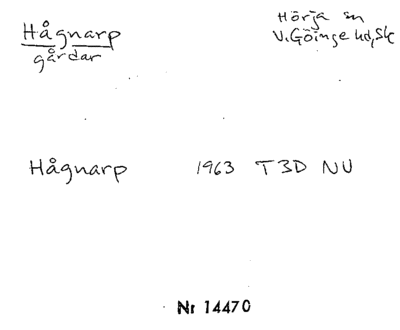 Hågnarp
gårdar
Hörja sn
V. Göinge hd, Sk
Hågnarp 1963 T3D NU
Nr 14470